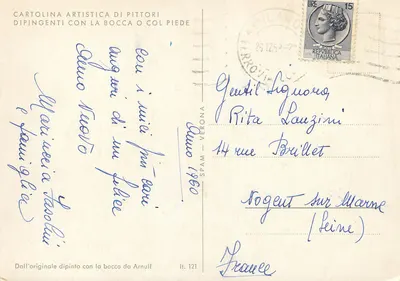 CARTOLINA ARTISTICA DI PITTORI
DIPINGENTI CON LA BOCCA O COL PIEDE
con i miei più cari
auguri di un felice
Anno Nuovo
Marinccia Fasolini
e famiglia
Anno 1960
Dall'originale dipinto con la bocca da Arnulf
It. 121
SPVM - VERONA
LIRE 15
REPUBBLICA
ITALIANA
FERROVIA
Gentil Signora,
Rita Lanzini
14 rue Brillet
Nogent sur Marne
(Seine)
France